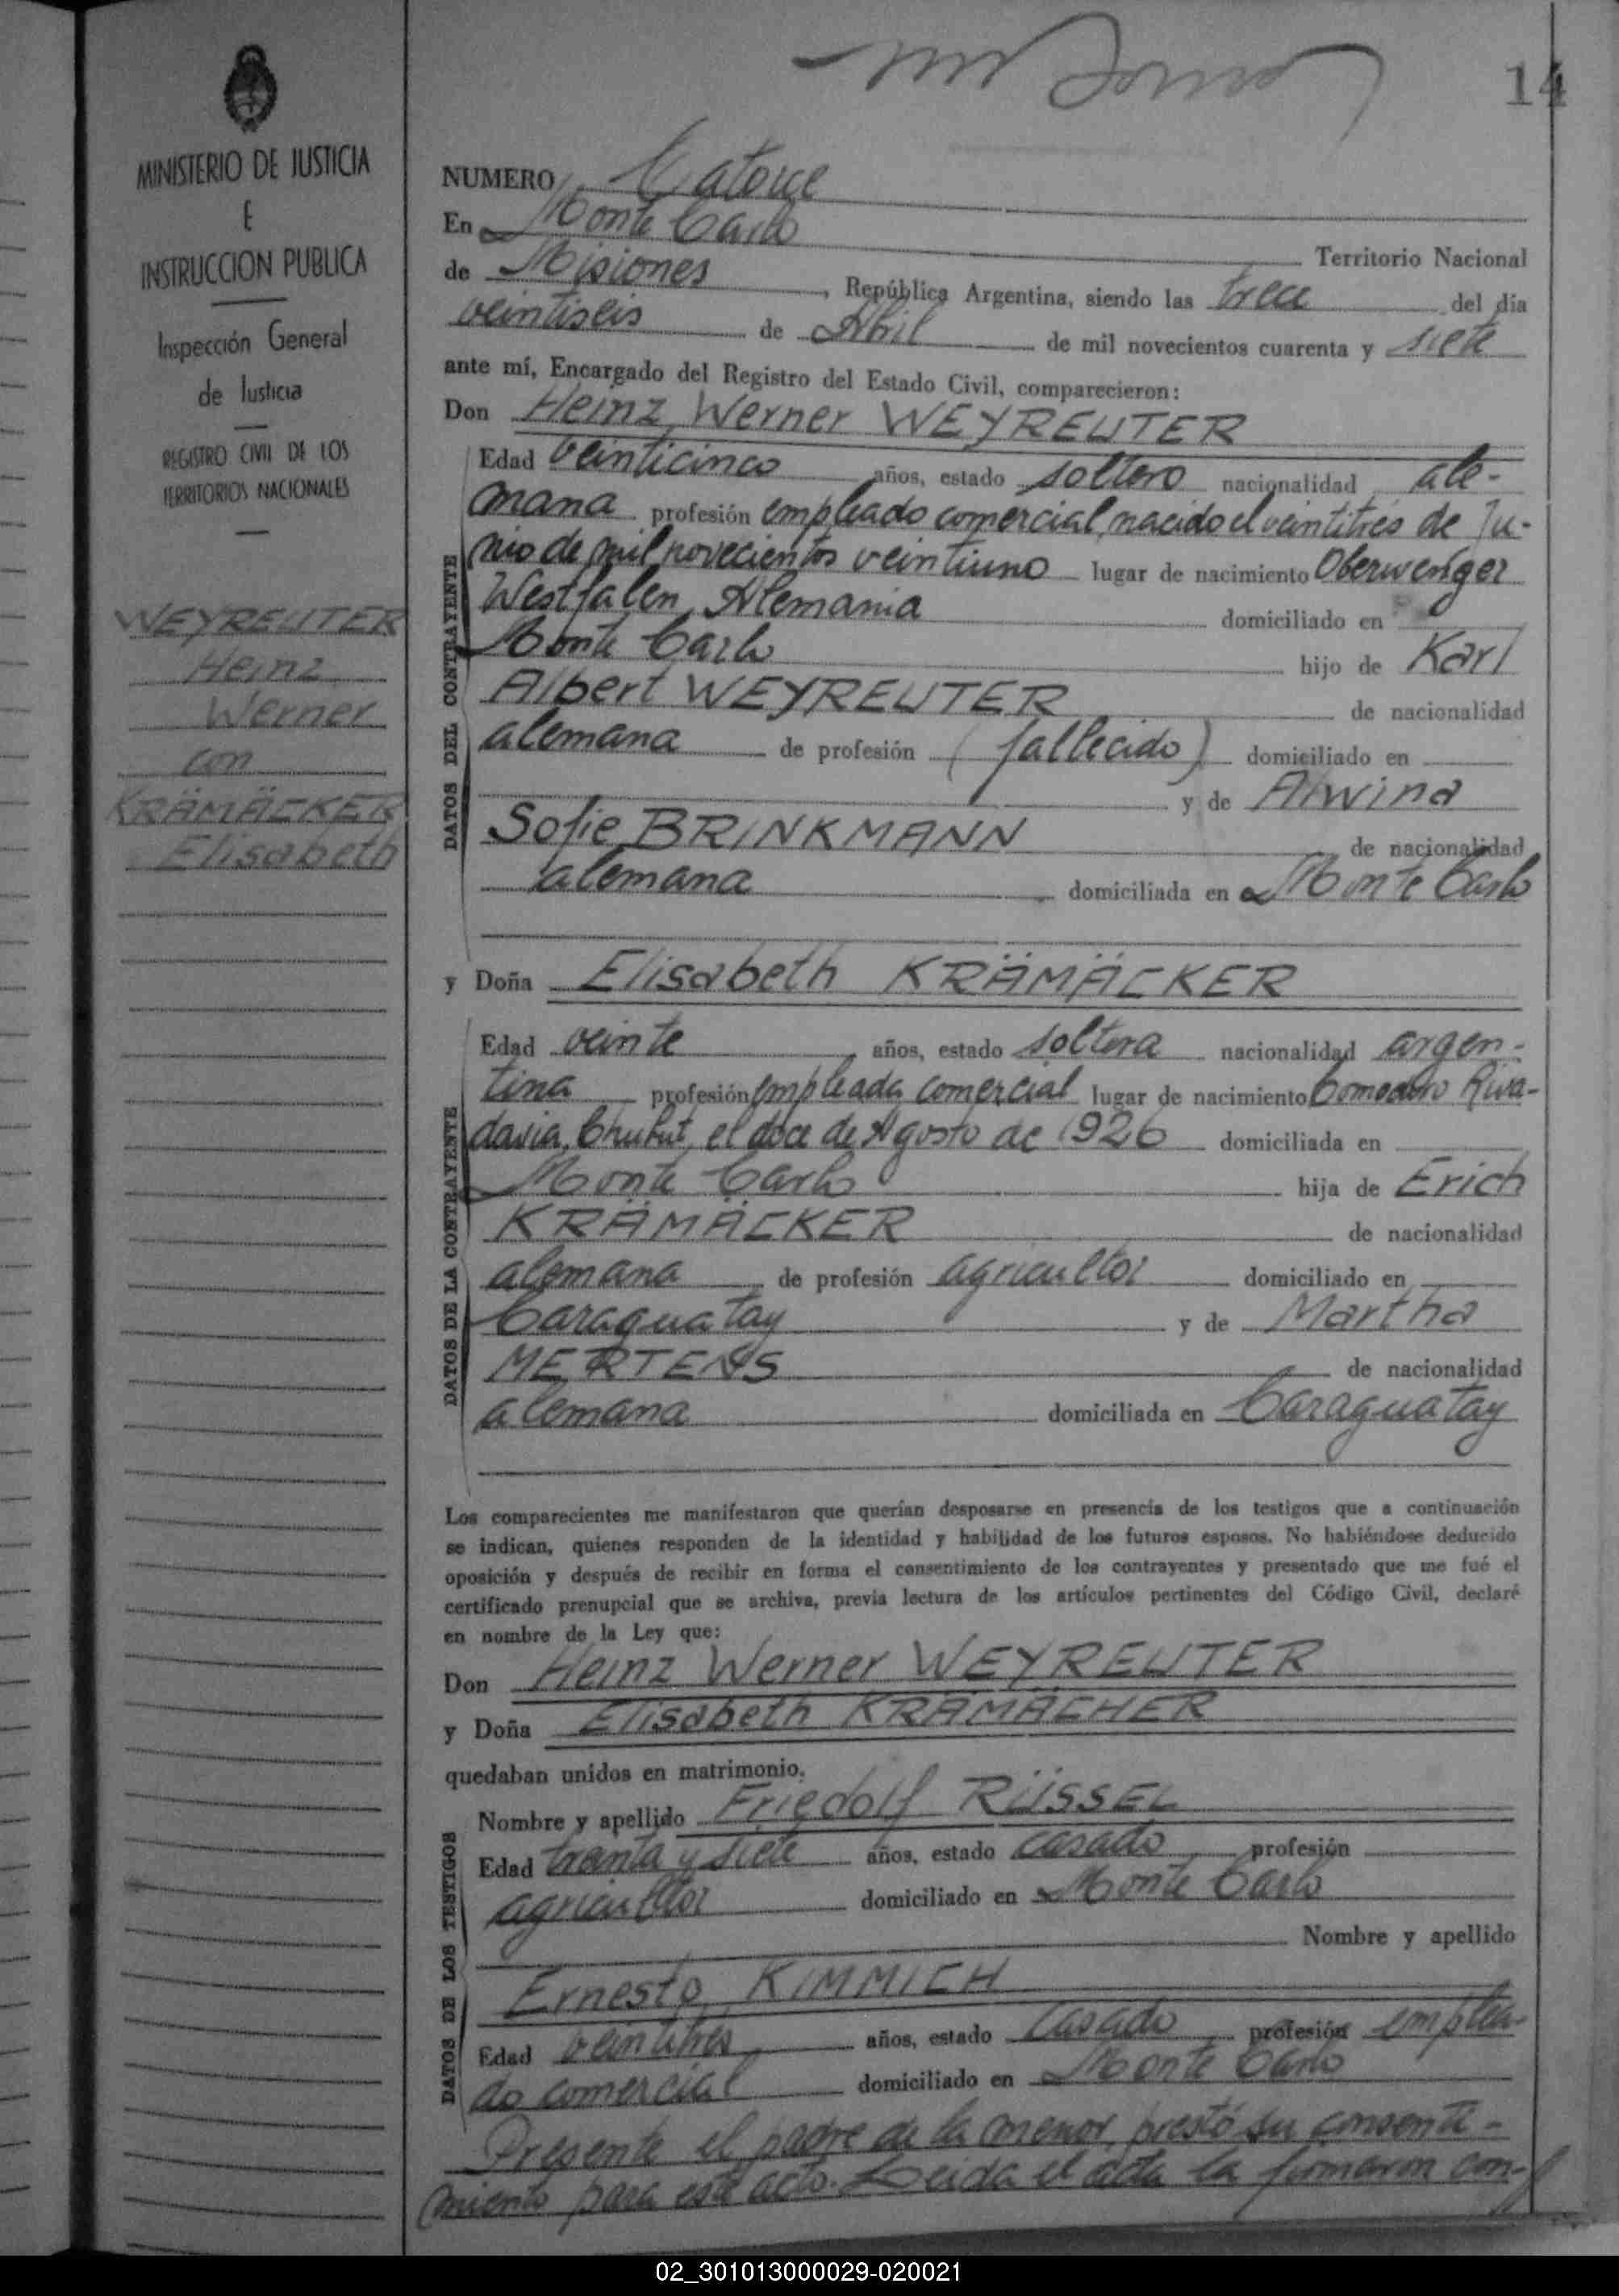 14
MINISTERIO DE JUSTICIA
E
INSTRUCCION PUBLICA
Inspección General
de Justicia
REGISTRO CIVIL DE LOS
TERRITORIOS NACIONALES
WEYREUTER
Heinz
Werner
con
KRÄMÄCKER
Elisabeth
NUMERO Catorce
En Monte Carlo
Territorio Nacional
de Misiones, República Argentina, siendo las trece del día
veintiseis de Abril de mil novecientos cuarenta y siete
ante mí, Encargado del Registro del Estado Civil, comparecieron:
Don Heinz Werner WEYREUTER
DATOS DEL CONTRAYENTE
Edad veinticinco años, estado soltero nacionalidad ale-
mana profesión empleado comercial, nacido el veintitrés de Ju-
nio de mil novecientos veintiuno lugar de nacimiento Oberwenger
Westfalen, Alemania domiciliado en
Monte Carlo hijo de Karl
Albert WEYREUTER de nacionalidad
alemana de profesión (fallecido) domiciliado en
y de Alwina
Sofie BRINKMANN de nacionalidad
alemana domiciliada en Monte Carlo
y Doña Elisabeth KRÄMÄCKER
DATOS DE LA CONTRAYENTE
Edad veinte años, estado soltera nacionalidad argen-
tina profesión empleada comercial lugar de nacimiento Comodoro Riva-
davia, Chubut, el doce de Agosto de 1926 domiciliada en
Monte Carlo hija de Erich
KRÄMÄCKER de nacionalidad
alemana de profesión agricultor domiciliado en
Caraguatay y de Martha
MERTENS de nacionalidad
alemana domiciliada en Caraguatay
Los comparecientes me manifestaron que querían desposarse en presencia de los testigos que a continuación
se indican, quienes responden de la identidad y habilidad de los futuros esposos. No habiéndose deducido
oposición y después de recibir en forma el consentimiento de los contrayentes y presentado que me fué el
certificado prenupcial que se archiva, previa lectura de los artículos pertinentes del Código Civil, declaré
en nombre de la Ley que:
Don Heinz Werner WEYREUTER
y Doña Elisabeth KRÄMÄCHER
quedaban unidos en matrimonio.
DATOS DE LOS TESTIGOS
Nombre y apellido Friedolf RÜSSEL
Edad treinta y siete años, estado casado profesión
agricultor domiciliado en Monte Carlo
Nombre y apellido
Ernesto KIMMICH
Edad veintitres años, estado casado profesión emplea-
do comercial domiciliado en Monte Carlo
Presente el padre de la menor, prestó su consenti-
miento para este acto. Leida el acta la firmaron con-
02_301013000029-020021